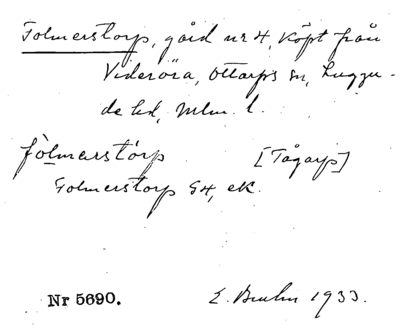 Folmerstorp, gård nr 4, köpt från
Videröra, Ottarps sn, Luggu-
de hd, Mlm. l.
fòlmarstórp [Tågarp]
Folmerstorp G4, ek.
Nr 5690. E. Bruhn 1933.